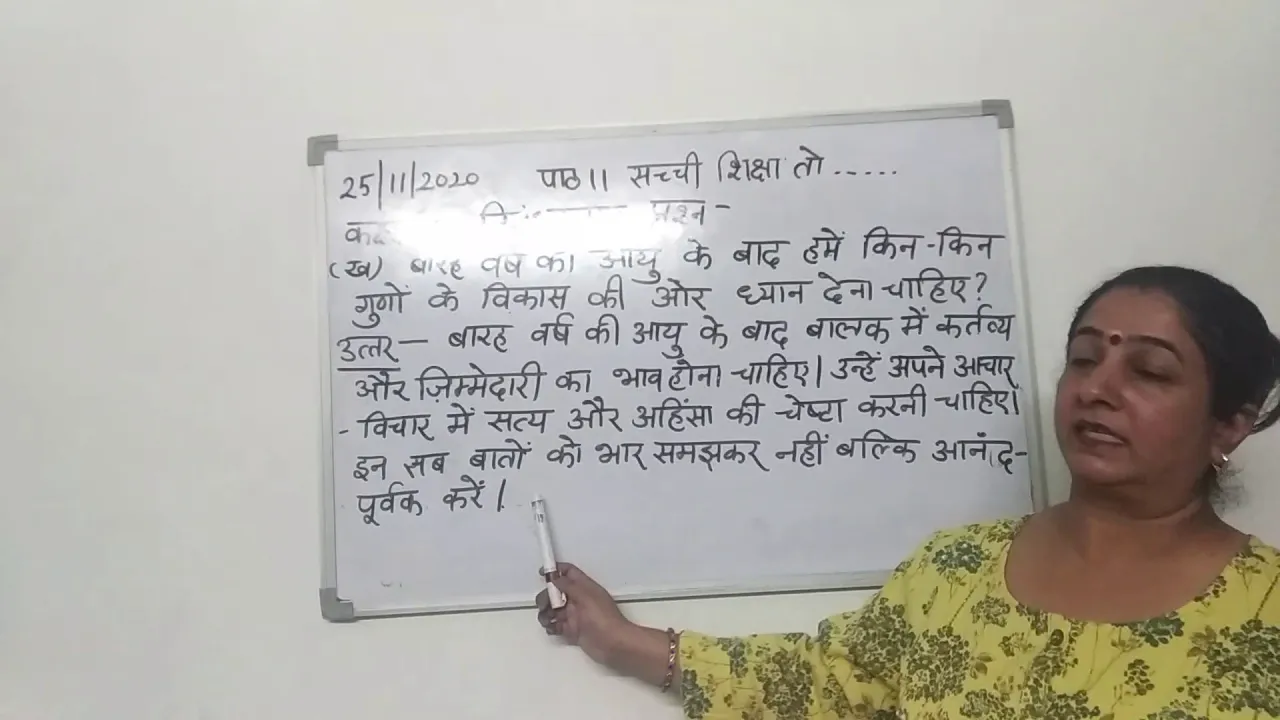 25/11/2020 पाठ 11 सच्ची शिक्षा तो .....
प्रश्न-
(ख) बारह वर्ष की आयु के बाद हमें किन-किन
गुणों के विकास की ओर ध्यान देना चाहिए?
उत्तर- बारह वर्ष की आयु के बाद बालक में कर्तव्य
और ज़िम्मेदारी का भाव होना चाहिए। उन्हें अपने आचार
- विचार में सत्य और अहिंसा की चेष्टा करनी चाहिए।
इन सब बातों को भार समझकर नहीं बल्कि आनंद-
पूर्वक करें।